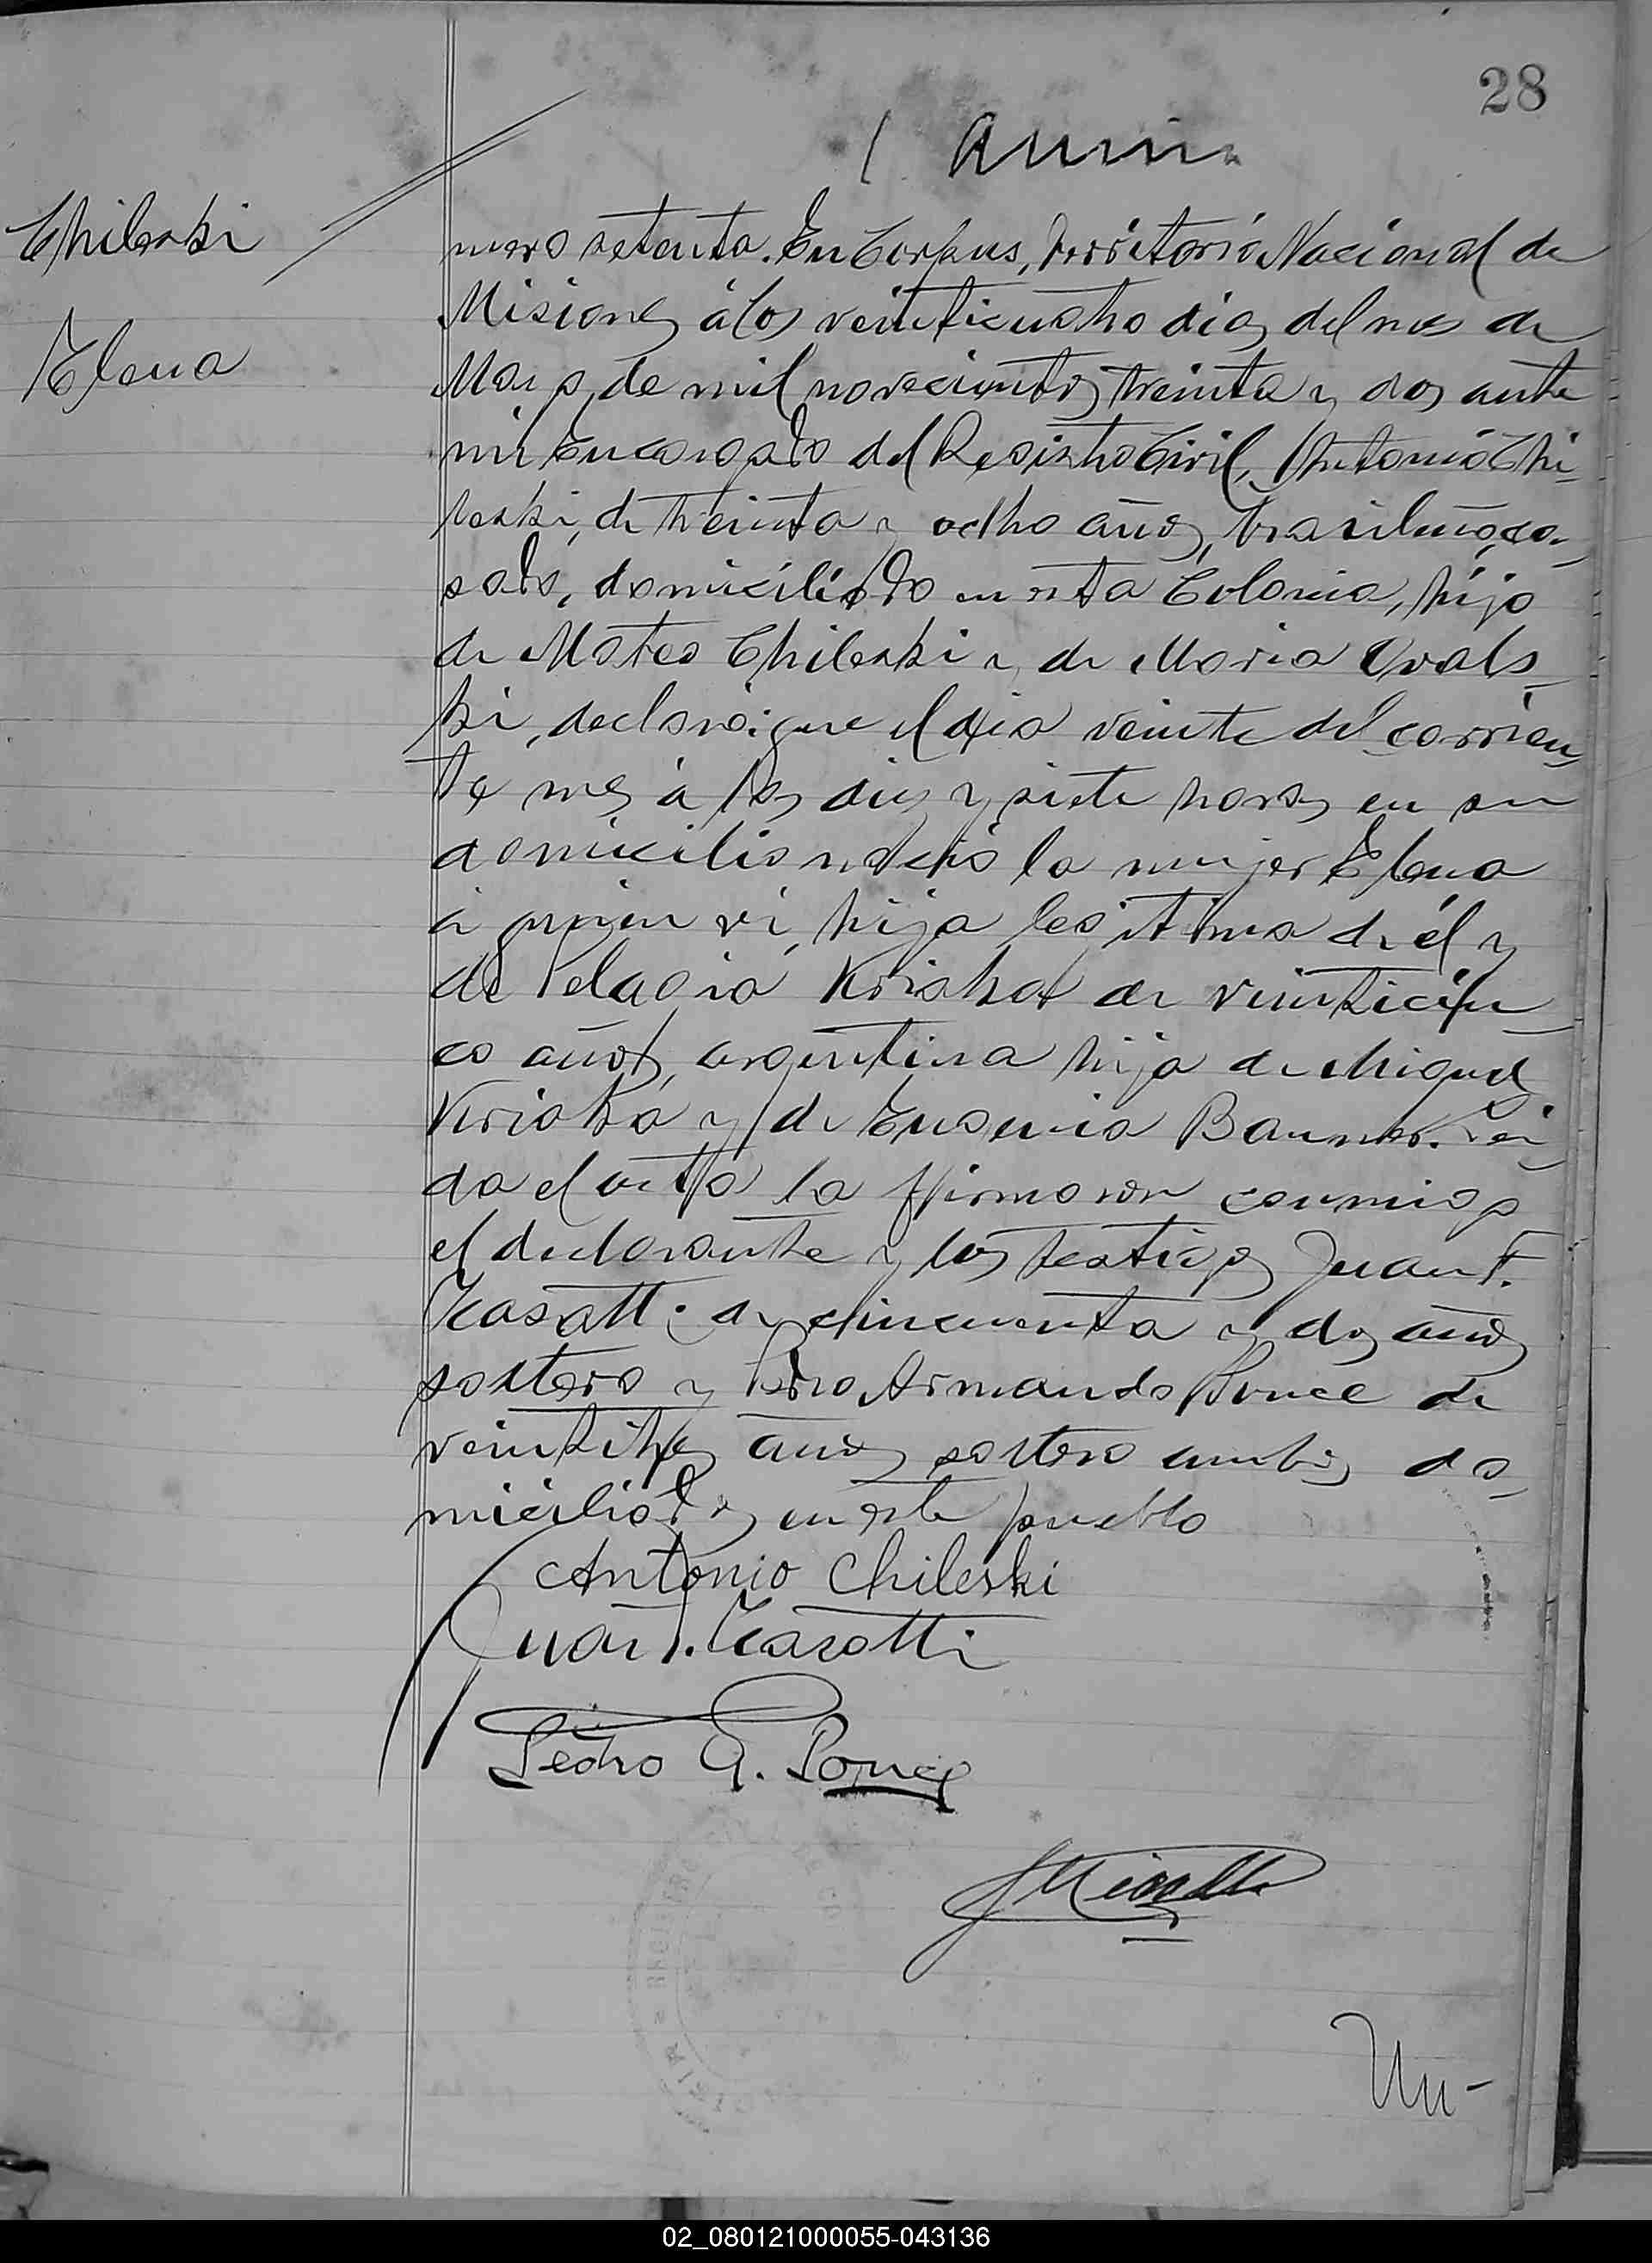 28
Chileski
Elena
mero setenta. En Corpus, Territorio Nacional de
Misiones á los veinticuatro dias del mes de
de mil novecientos treinta y dos ante
mi Encargado del Registro Civil, Antonio Chi-
leski, de treinta y ocho años, brasileño, ca-
sado, domiciliado en esta Colonia, hijo
de Mateo Chileski y de Maria Ovals-
ki, declaró: que el dia veinte del corrien-
te mes á las diez y siete horas en su
domicilio nació la mujer Elena
á quien vi, hija legitima de él y
de Pelagia de veinticin-
co años, argentina hija de Miguel
y de Eugenia Leí-
da el acta la firmaron conmigo
el declarante y los testigos Juan F.
de cincuenta y dos años
soltero y Pedro Armando Ponce de
veintitres años soltero ambos do-
miciliados en este pueblo
Antonio Chileski
Juan F.
Pedro A. Ponce
Un-
02_080121000055-043136